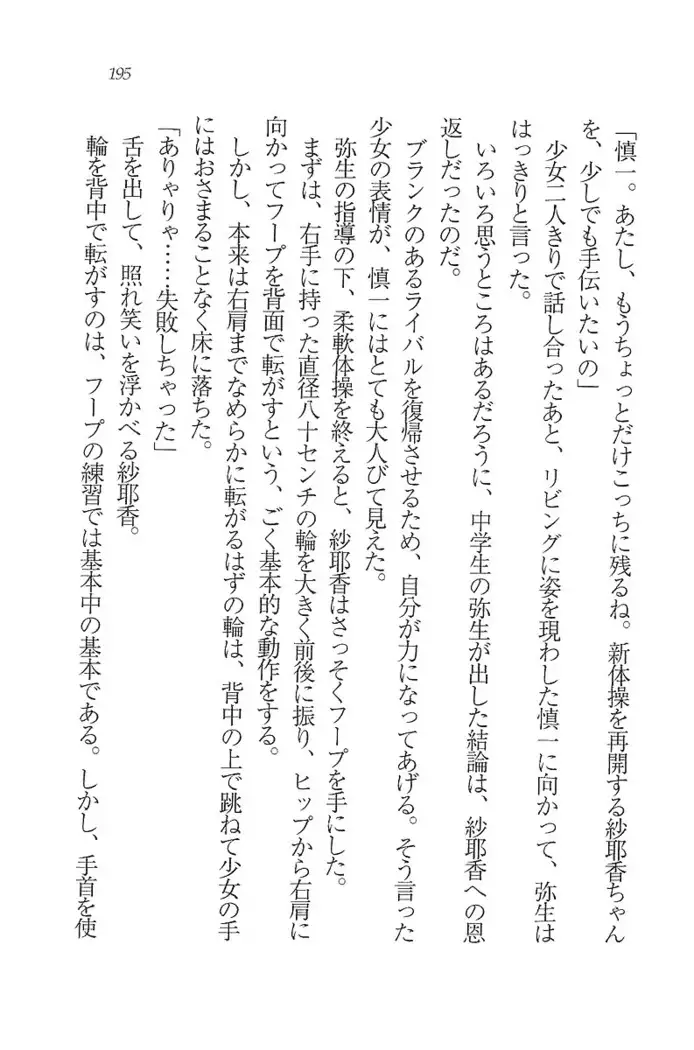 195
「慎一。あたし、もうちょっとだけこっちに残るね。新体操を再開する紗耶香ちゃん
を、少しでも手伝いたいの」
少女二人きりで話し合ったあと、リビングに姿を現わした慎一に向かって、弥生は
はっきりと言った。
いろいろ思うところはあるだろうに、中学生の弥生が出した結論は、紗耶香への恩
返しだったのだ。
ブランクのあるライバルを復帰させるため、自分が力になってあげる。そう言った
少女の表情が、慎一にはとても大人びて見えた。
弥生の指導の下、柔軟体操を終えると、紗耶香はさっそくフープを手にした。
まずは、右手に持った直径八十センチの輪を大きく前後に振り、ヒップから右肩に
向かってフープを背面で転がすという、ごく基本的な動作をする。
しかし、本来は右肩までなめらかに転がるはずの輪は、背中の上で跳ねて少女の手
にはおさまることなく床に落ちた。
「ありゃりゃ……失敗しちゃった」
舌を出して、照れ笑いを浮かべる紗耶香。
輪を背中で転がすのは、フープの練習では基本中の基本である。しかし、手首を使